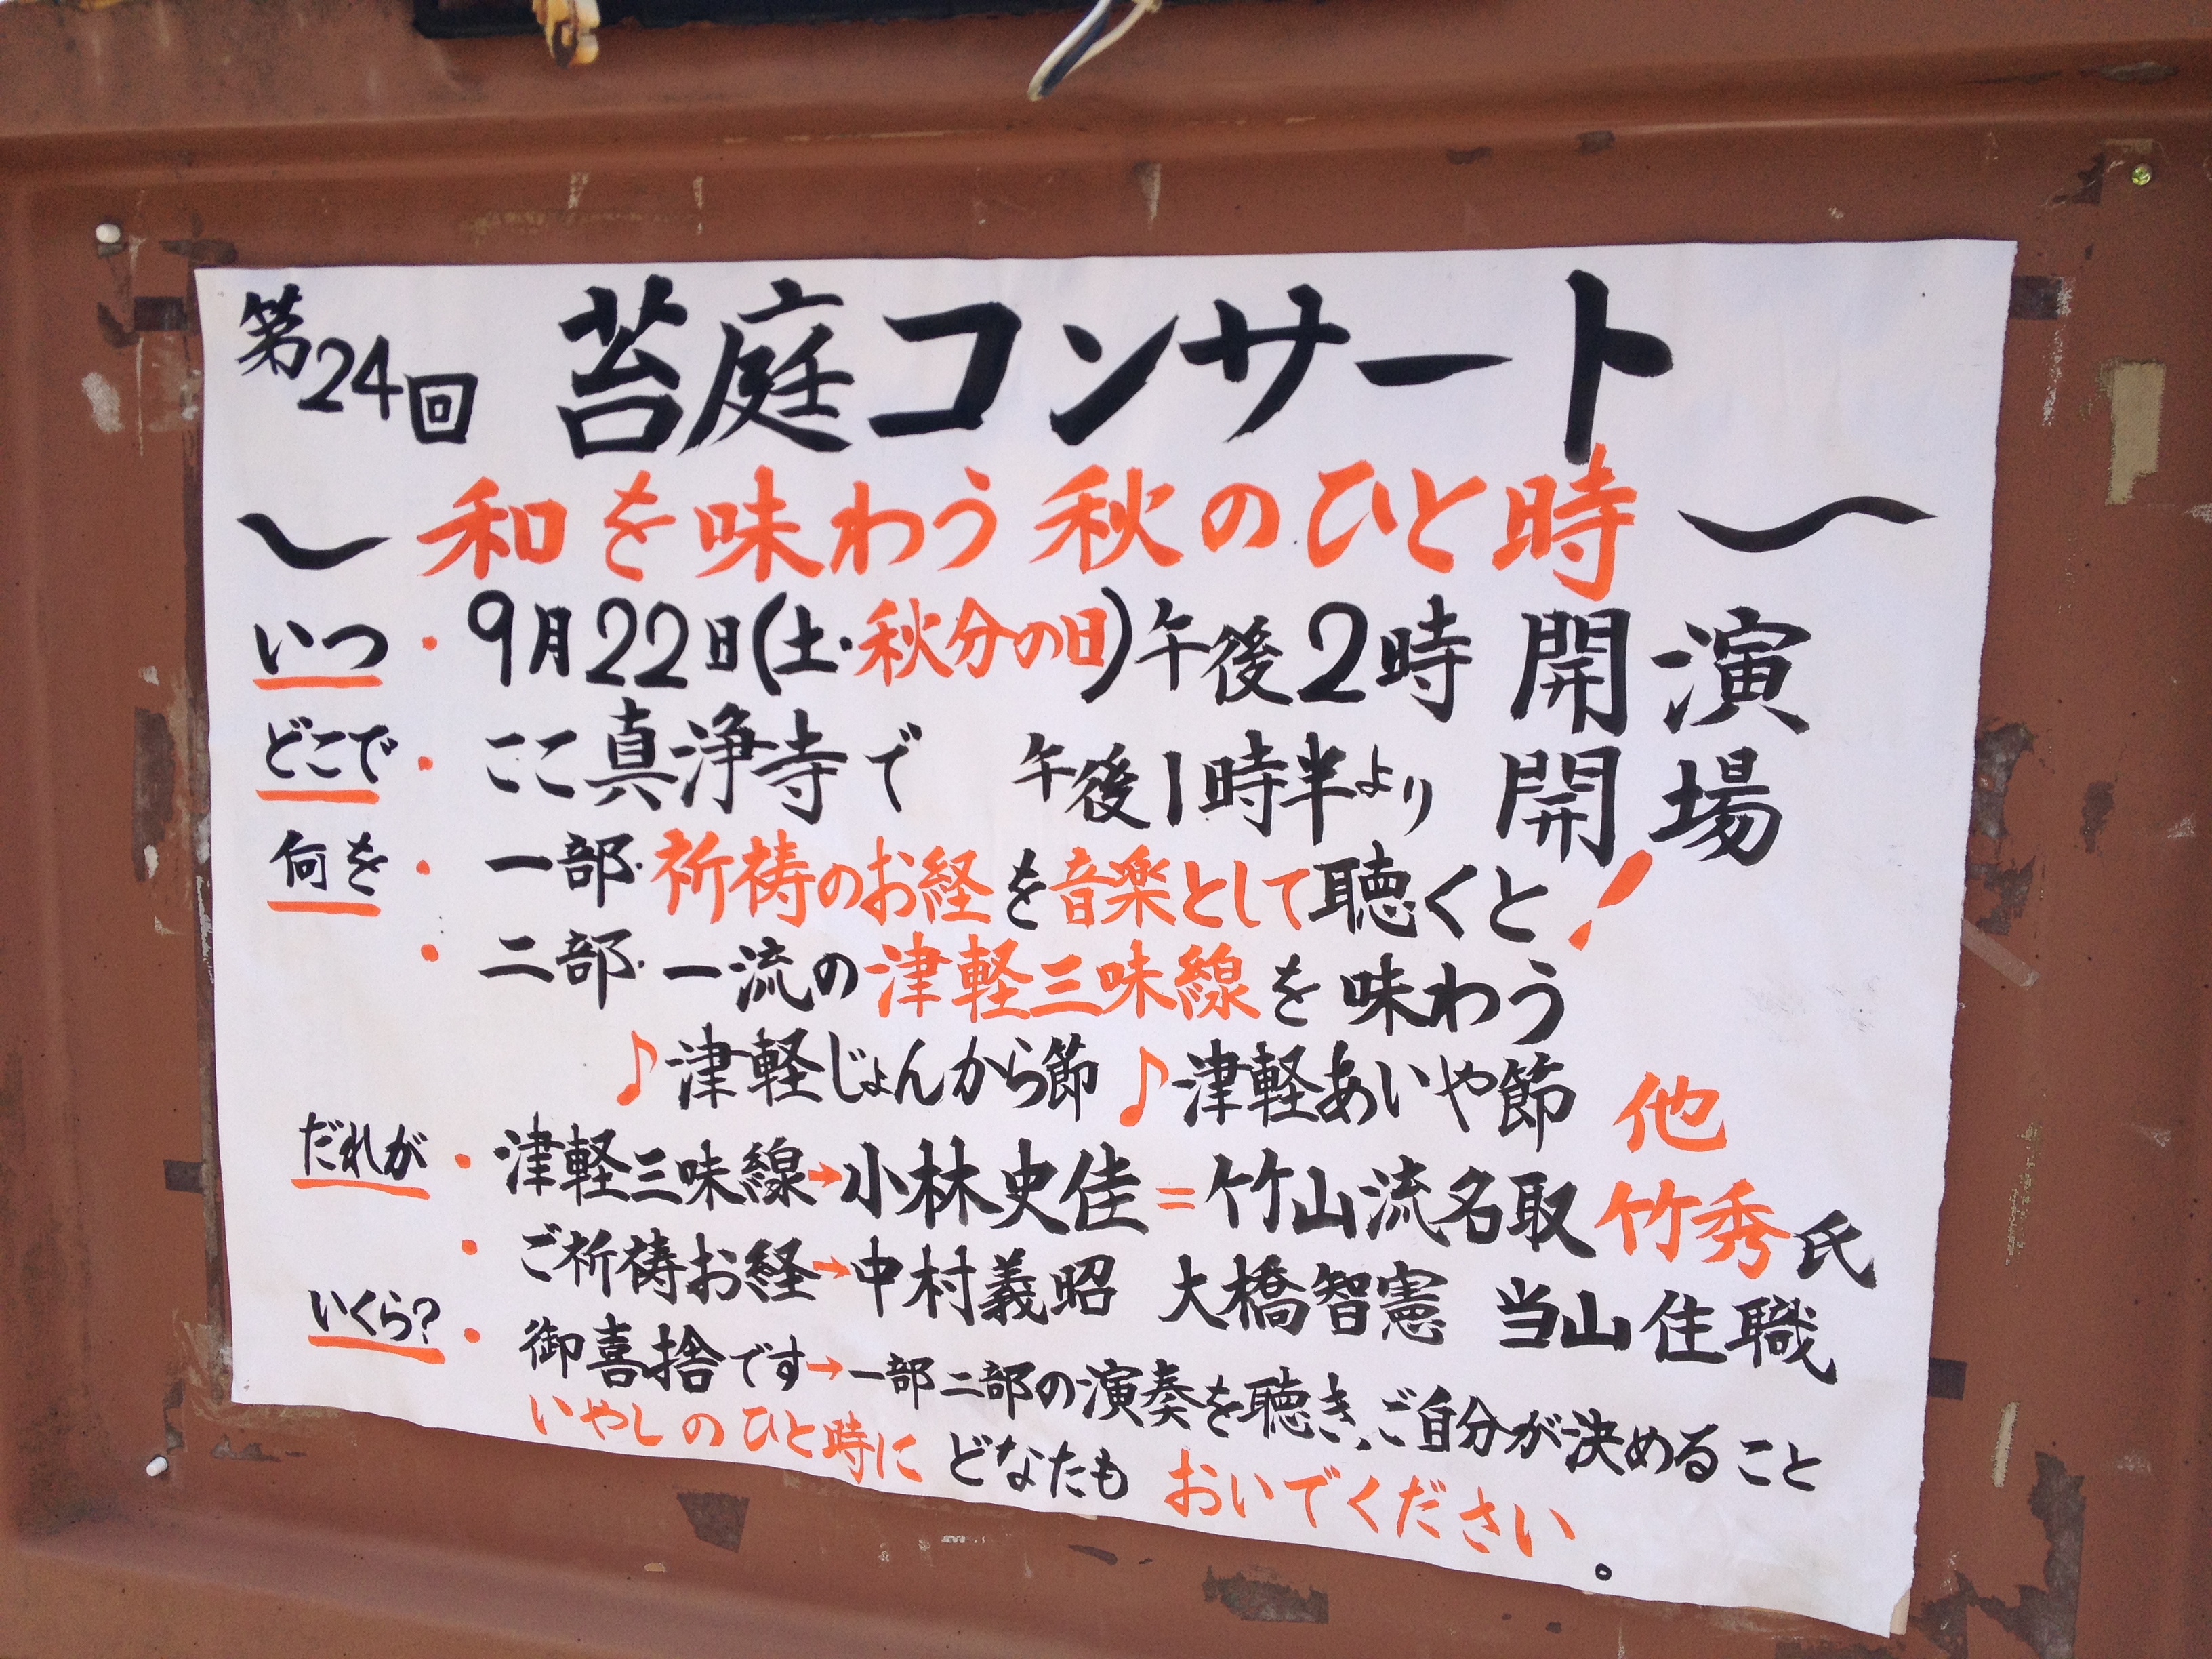 第24回 苔庭コンサート
〜和を味わう秋のひと時〜
いつ・9月22日(土・秋分の日)午後2時 開演
どこで・ここ真浄寺で 午後1時半より 開場
何を・一部・祈祷のお経を音楽として聴くと!
・二部・一流の津軽三味線を味わう
♪津軽じょんから節 ♪津軽あいや節 他
だれが・津軽三味線→小林史佳=竹山流名取 竹秀氏
・ご祈祷お経→中村義昭 大橋智憲 当山住職
いくら?・御喜捨です→一部二部の演奏を聴き、ご自分が決めること
いやしのひと時に どなたも おいでください。